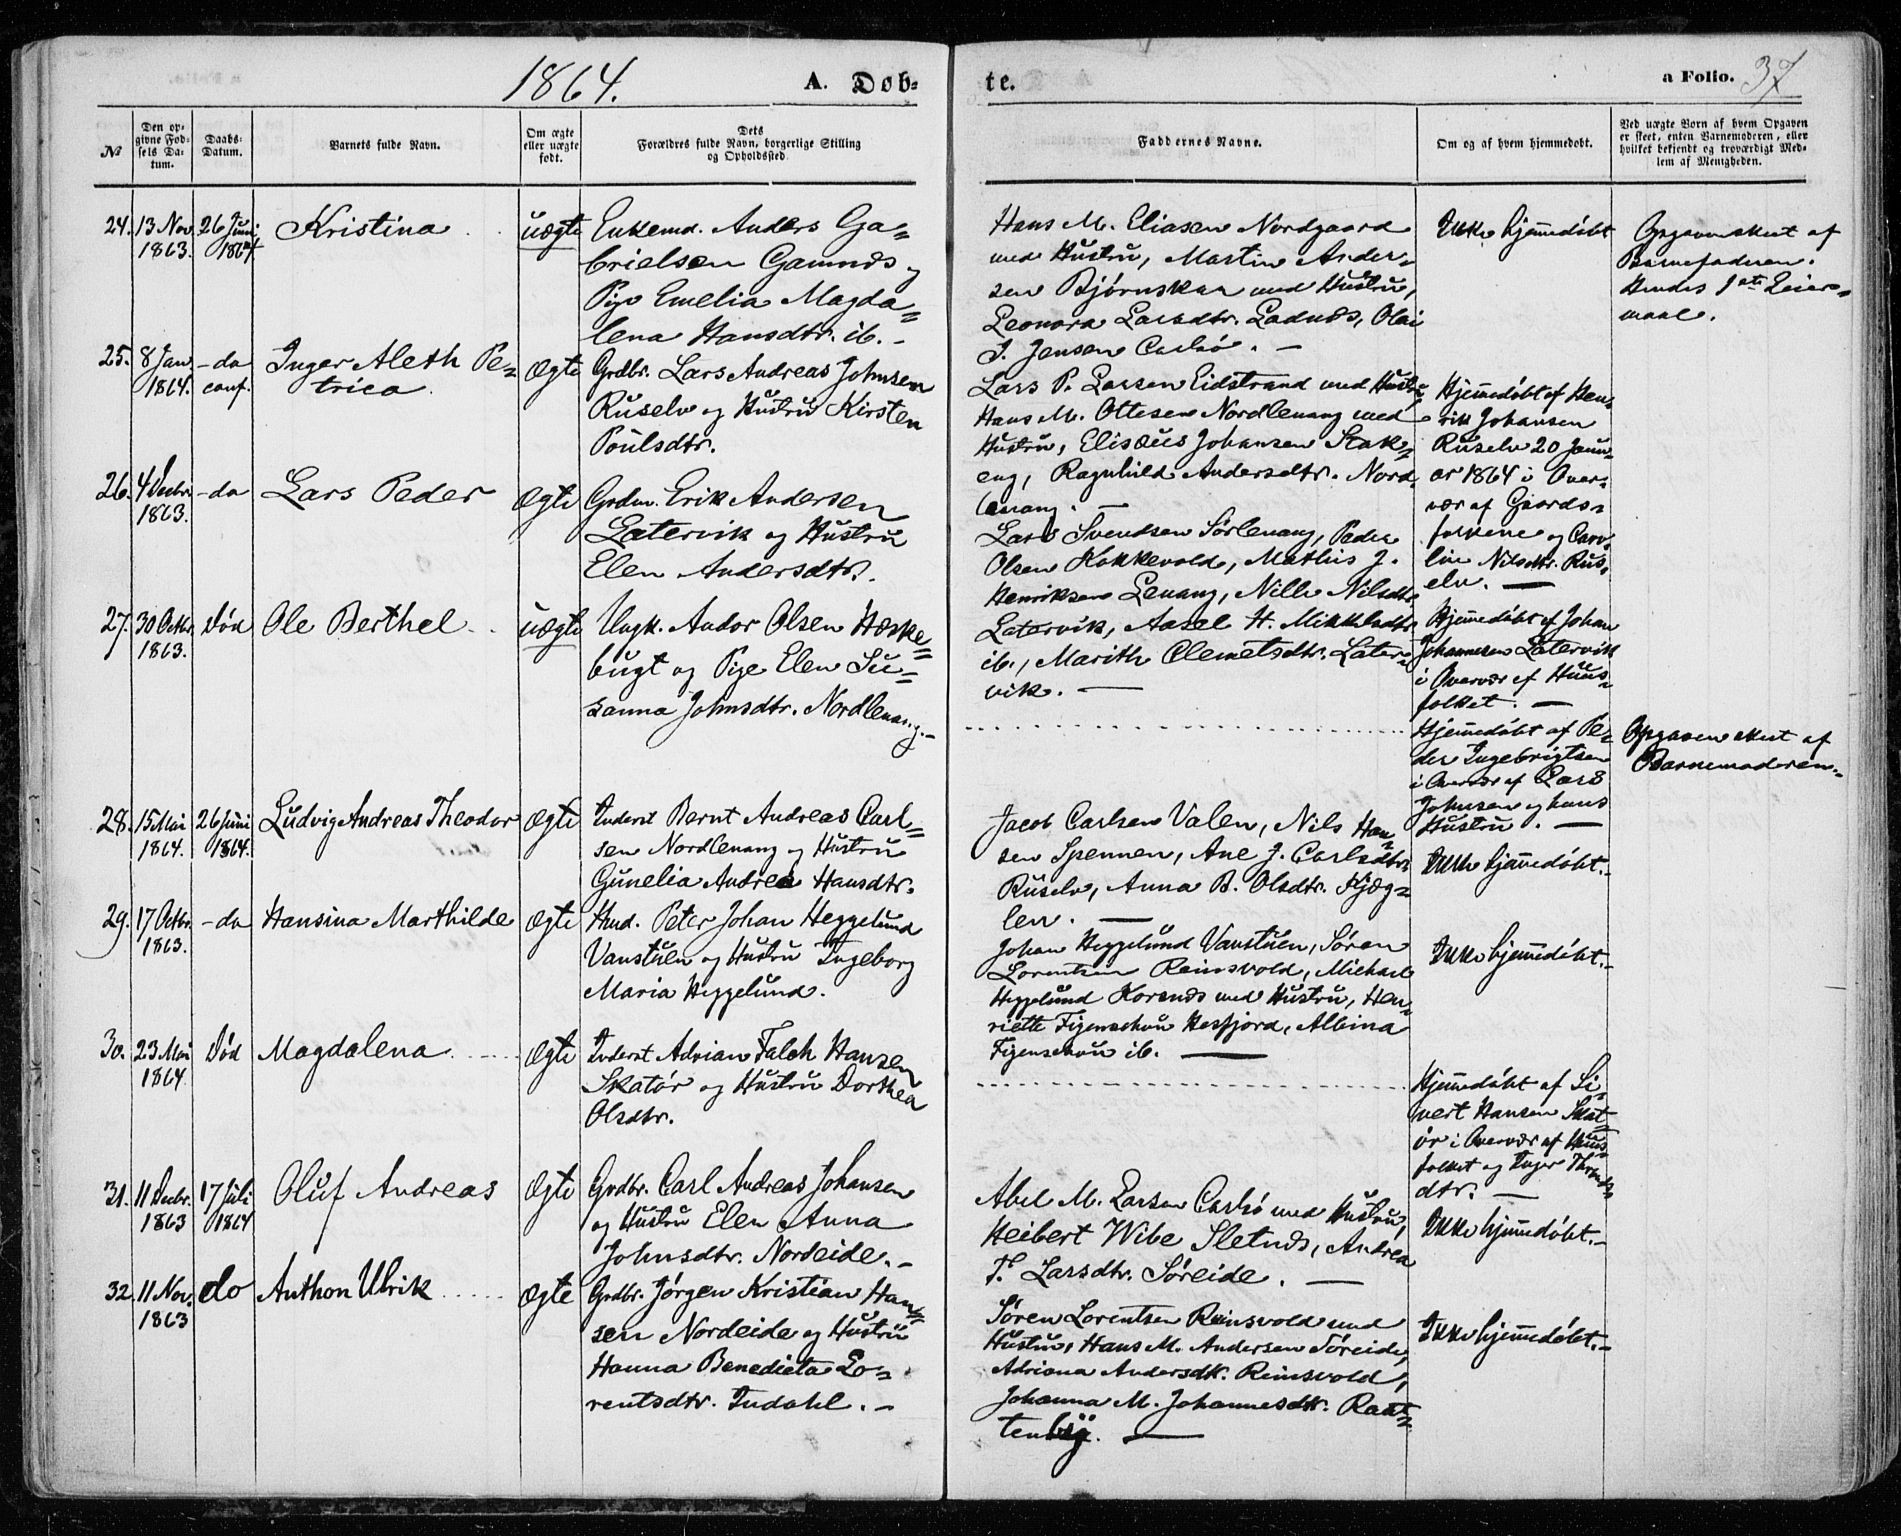 1864.
A. Døb-
te.
a Folio. 37
№
Den op-
givne Fød-
sels Da-
tum.
Daabs-
Datum.
Barnets fulde Navn.
Om ægte
eller uægte
født.
Dets
Forældres fulde Navn, borgerlige Stilling
og Opholdssted.
Faddernes Navne.
Om og af hvem hjemmedøbt.
Ved uægte Børn af hvem Opgaven
er skeet, enten Barnemoderen, eller
hvilket bekjendt og troværdigt Med-
lem af Menigheden.
24. 13 Nov.
1863.
26 Juni
1864
Kristina
uægte
Enkemd. Anders Ga=
brielsen Gamnæs og
Pige Emelia Magda=
lena Hansdtr. ib.
Hans M. Eliasen Nordgaard
med Hustru, Martin Ander-
sen Bjørnskar med Hustru,
Leonora Larsdtr. Ladnæs, Olai
J. Jensen Carlsø.
Ikke hjemmedøbt
Opgaven skeet af
Barnefaderen.
Hendes 1ste Leier-
maal.
25. 8 Jan.
1864.
- do
conf.
Inger Aleth Pe-
trica
Ægte
Grdbr. Lars Andreas Johnsen
Ruselv og Hustru Kirsten
Poulsdtr.
Lars P. Larsen Eidstrand med Hustru
Hans M. Ottesen Nordlenang med
Hustru, Elisæus Johansen Stak-
eng, Ragnhild Andersdtr. Nord-
lenang.
Hjemmedøbt af Hen-
rik Johansen
Ruselv 20 Janu-
ar 1864 i Over-
vær af Gaards-
folkene og Caro-
line Nilsdtr. Rus-
elv.
26. 4 Decbr.
1863.
- do
Lars Peder
Ægte
Grdm. Erik Andersen
Latervik og Hustru
Elen Andersdtr.
Lars Svendsen Sørlenang, Peder
Olsen Kokkevold, Mathis J.
Henriksen Lenang, Nille Nilsdtr.
Latervik, Aasel H. Mikkelsdtr.
ib., Marith Clemetsdtr. Later-
vik.
Hjemmedøbt af Johan
Johannesen Latervik
i Overvær af Huus-
folket.
27. 30 Octbr.
1863.
Død
Ole Berthel
uægte
Ungk. Andor Olsen Hæske-
bugt og Pige Elen Su-
sanna Johnsdtr. Nordlenang.
Hjemmedøbt af Pe-
der Ingebrigtsen
i Overvær af Lars
Johnsen og hans
Hustru.
Opgaven skeet af
Barnemoderen.
28. 15 Mai
1864.
26 Juni
1864.
Ludvig Andreas Theodor
Ægte
Inderst Bernt Andreas Carl-
sen Nordlenang og Hustru
Gunelia Andrea Hansdtr.
Jacob Carlsen Valen, Nils Han-
sen Spennen, Ane J. Carlsdtr.
Ruselv, Anna B. Olsdtr. Kjæg-
len.
Ikke hjemmedøbt.
29. 17 Octbr.
1863.
- do
Hansina Marthilde
Ægte
Hmd. Peter Johan Heggelund
Vanstuen og Hustru Ingeborg
Maria Heggelund.
Johan Heggelund Vanstuen, Søren
Lorentsen Reinsvold, Michael
Heggelund Korsnæs med Hustru, Hen-
riette Figenschou Hesfjord, Albina
Figenschou ib.
Ikke hjemmedøbt.
30. 23 Mai
1864
Død
Magdalena
Ægte
Inderst Adrian Falch Hansen
Skatør og Hustru Dorthea
Olsdtr.
Hjemmedøbt af Si-
vert Hansen Skat-
ør i Overvær af Huus-
folket og Inger
dtr.
31. 11 Decbr.
1863
17 Juli
1864
Oluf Andreas
Ægte
Grdbr. Carl Andreas Johansen
og Hustru Elen Anna
Johnsdtr. Nordeide.
Abel M. Larsen Carlsø med Hustru,
Heibert Wibe Sletnæs, Andrea
F. Larsdtr. Søreide.
Ikke hjemmedøbt.
32. 11 Nov.
1863
do
Anthon Ulrik
Ægte
Grdbr. Jørgen Kristian Han-
sen Nordeide og Hustru
Hanna Benedicta Lo-
rentsdtr. Indahl.
Søren Lorentsen Reinsvold med
Hustru, Hans M. Andersen Søreide,
Adriana Andersdtr. Reinsvold,
Johanna M. Johannesdtr. Raat-
ten
Ikke hjemmedøbt.